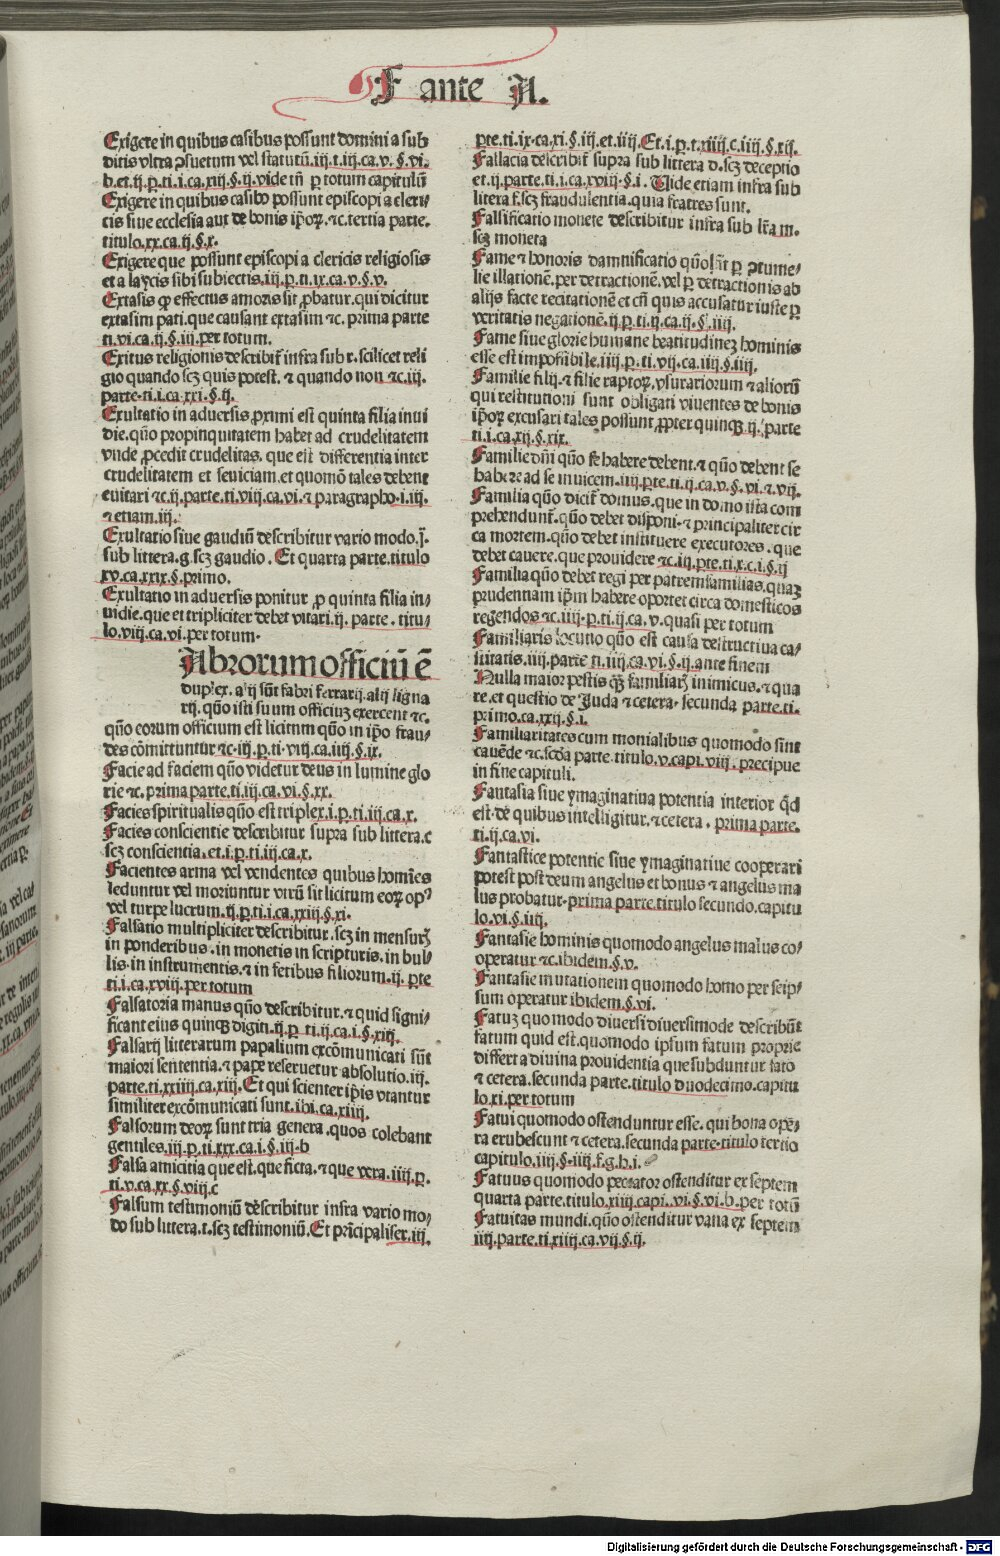 F ante A.
Exigere in quibus casibus possunt domini a sub
ditis vltra ꝯsuetum vel statutū.iii.t.iii.ca.v.§.vi.
b.et.ij.p.ti.i.ca.xiij.§.ij.vide tñ ꝑ totum capitulū
Exigere in quibus casibꝰ possunt episcopi a cleri⸗
cis siue ecclesia aut de bonis ip̄oꝝ.⁊c.tertia parte.
titulo.xx.ca.ij.§.x.
Exigere que possunt episcopi a clericis religiosis
et a laycis sibi subiectis.iij.p.ti.ix.ca.v.§.v.
Extasis ꝙ effectus amoris sit ꝓbatur.qui dicitur
extasim pati.que causant extasim ⁊c. prima parte
ti.vi.ca.ij.§.iij.per totum.
Exitus religionis describit᷑ infra sub r.scilicet reli
gio quando scꝫ quis potest. ⁊ quando non ⁊c.iij.
parte.ti.i.ca.xxi.§.ij.
Exultatio in aduersis ꝓximi est quinta filia inui
die.quō propinquitatem habet ad crudelitatem
vnde ꝓcedit crudelitas. que est differentia inter
crudelitatem et seuiciam.et quomō tales debent
euitari ⁊c.ij.parte.ti.viij.ca.vi.⁊ paragrapho.i.iij.
⁊ etiam.iij.
Exultatio siue gaudiū describitur vario modo.j.
sub littera.g.scꝫ gaudio. Et quarta parte.titulo
xv.ca.xxix.§.primo.
Exultatio in aduersis ponitur ꝓ quinta filia in⸗
uidie.que et tripliciter debet vitari.ij. parte. titu⸗
lo.viij.ca.vi.per totum.
Abrorum officiū ē
duplex. alij sūt fabri ferrarij.alij ligna
rij. quō isti suum officiuꝫ exercent ⁊c.
quō eorum officium est licitum quō in ip̄o frau⸗
des cōmittuntur ⁊c.iij.p.ti.viij.ca.iiij.§.ix.
Facie ad faciem quō videtur deus in lumine glo
rie ⁊c.prima parte.ti.iij.ca.vi.§.xx.
Facies spiritualis quō est triplex.i.p.ti.iij.ca.x.
Facies conscientie describitur supra sub littera.c
scꝫ conscientia.et.i.p.ti.iij.ca.x.
Facientes arma vel vendentes quibus homīes
leduntur vel moriuntur vtrū sit licitum eoꝝ opꝰ
vel turpe lucrum.ij.p.ti.i.ca.xxiij.§.xi.
Falsatio multipliciter describitur.scꝫ in mensurꝭ
in ponderibus.in monetis in scripturis.in bul⸗
lis.in instrumentis.⁊ in fetibus filiorum.ij. pte
ti.i.ca.xviij.per totum
Falsatoria manus quō describitur.⁊ quid signi⸗
ficant eius quinqꝫ digiti.ij.p ti.ij.ca.i.§.xiij.
Falsarij litterarum papalium excōmunicati sūt
maiori sententia.⁊ pape reseruetur absolutio.iij.
parte.ti.xxiiij.ca.xiij.Et qui scienter ip̄is vtantur
similiter excōmunicati sunt.ibi.ca.xiiij.
Falsorum deoꝝ sunt tria genera .quos colebant
gentiles.iij.p.ti.xxx.ca.i.§.iij.b
Falsa amicitia que est.que ficta.⁊ que vera.iiij.p.
ti.v.ca.xx.§.viij.c
Falsum testimoniū describitur infra vario mo⸗
do sub littera.t.scꝫ testimoniū.Et prīcipaliter.iij.
pte.ti.ix.ca.xi.§.iij.et.iiij.Et.i.p.t.xiiij.c.iiij.§.xij.
Fallacia describit᷑ supra sub littera d.scꝫ deceptio
et.ij.parte.ti.i.ca.xviij.§.i. Vide etiam infra sub
litera f.scꝫ fraudulentia.quia fratres sunt.
Falsificatio monete describitur infra sub lr̄a m.
scꝫ moneta
Fame ⁊ honoris damnificatio quō sit ꝑ ꝯtume⸗
lie illationē.per detractionē.vel ꝑ detractionis ab
alijs facte recitationē et cū quis accusatur iuste ꝑ
veritatis negationē.ij.p.ti.ij.ca.ij.§.iiij.
Fame siue glorie humane beatitudineꝫ hominis
esse est impossibile.iiij.p.ti.vij.ca.iiij.§.iiij.
Familie filij.⁊ filie raptoꝝ.vsurariorum ⁊ aliorū
qui restitutioni sunt obligati viuentes de bonis
ip̄oꝝ excusari tales possunt ꝓpter quinqꝫ.ij.parte
ti.i.ca.xij.§.xix.
Familie dn̄i quō se habere debent.⁊ quō debent se
habere ad se inuicem.iiij.pte.ti.ij.ca.v.§.vi.⁊.vij.
Familia quō dicit᷑ domus.que in domo ista com
prehendunt᷑.quō debet disponi.⁊ principaliter cir
ca mortem.quō debet instituere executores.que
debet cauere.que prouidere ⁊c.iij.pte.ti.x.c.i.§.ij
Familia quō debet regi per patremfamilias.quaꝫ
prudentiam ip̄m habere oportet circa domesticos
regendos ⁊c.iiij.p.ti.ij.ca.v.quasi per totum
Familiaris locutio quō est causa destructiua ca⸗
stitatis.iiij.parte ti.iiij.ca.vi.§.ij.ante finem
Nulla maior pestis qꝫ familiarꝭ inimicus.⁊ qua
re.et questio de Juda ⁊ cetera.secunda parte.ti.
primo.ca.xxij.§.i.
Familiaritates cum monialibus quomodo sint
cauēde ⁊c.scd̄a parte.titulo.v.capi.viij.precipue
in fine capituli.
Fantasia siue ymaginatiua potentia interior qd̄
est.de quibus intelligitur.⁊ cetera. prima parte.
ti.ij.ca.vi.
Fantastice potentie siue ymaginatiue cooperari
potest post deum angelus et bonus ⁊ angelus ma
lus probatur.prima parte.titulo secundo.capitu
lo.vi.§.iiij.
Fantasie hominis quomodo angelus malus co⸗
operatur ⁊c.ibidem.§.v.
Fantasie mutationem quomodo homo per seip⸗
sum operatur ibidem.§.vi.
Fatuꝫ quomodo diuersi diuersimode describūt
fatum quid est.quomodo ipsum fatum proprie
differt a diuina prouidentia que subduntur fato
⁊ cetera.secunda parte.titulo duodecimo.capitu
lo.xi.per totum
Fatui quomodo ostenduntur esse. qui bona ope⸗
ra erubescunt ⁊ cetera.secunda parte.titulo tertio
capitulo.iiij.§.iiij.f.g.h.i.
Fatuus quomodo peccator ostenditur ex septem
quarta parte.titulo.xiiij.capi.vi.§.vi.b.per totū
Fatuitas mundi.quō ostenditur vana ex septem
iiij.parte.ti.xiiij.ca.vij.§.ij.
Digitalisierung gefördert durch die Deutsche Forschungsgemeinschaft - DFG